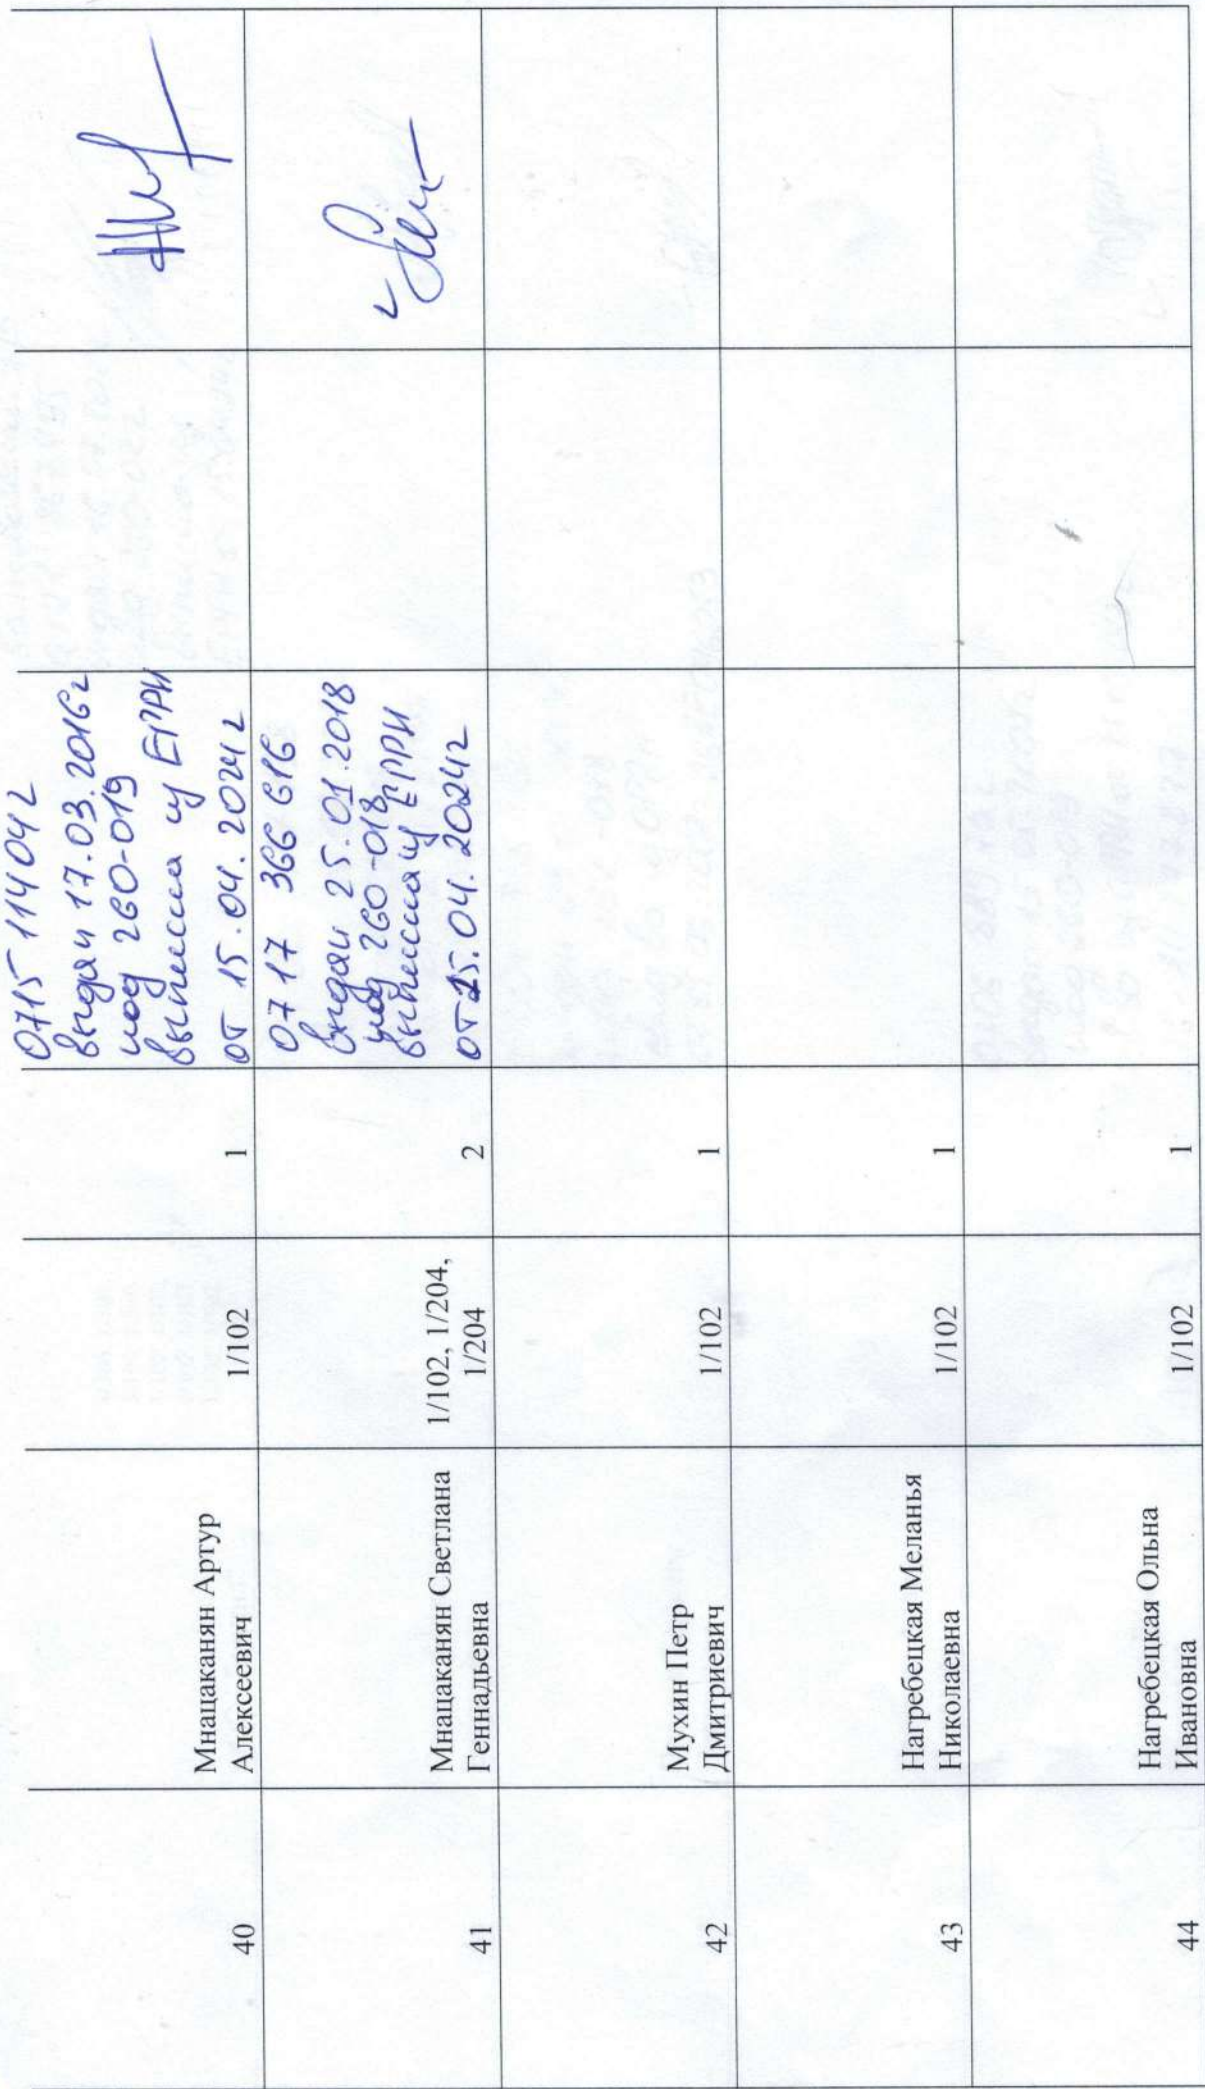 40
Мнацаканян Артур
Алексеевич
1/102
1
0715 114042
выдан 17.03.2016г
код 260-019
выписка из ЕГРН
от 15.04.2024г
41
Мнацаканян Светлана
Геннадьевна
1/102, 1/204,
1/204
2
07 17 366 616
выдан 25.01.2018
код 260-018
выписка из ЕГРН
от 25.04.2024г
42
Мухин Петр
Дмитриевич
1/102
1
43
Нагребецкая Меланья
Николаевна
1/102
1
44
Нагребецкая Ольна
Ивановна
1/102
1